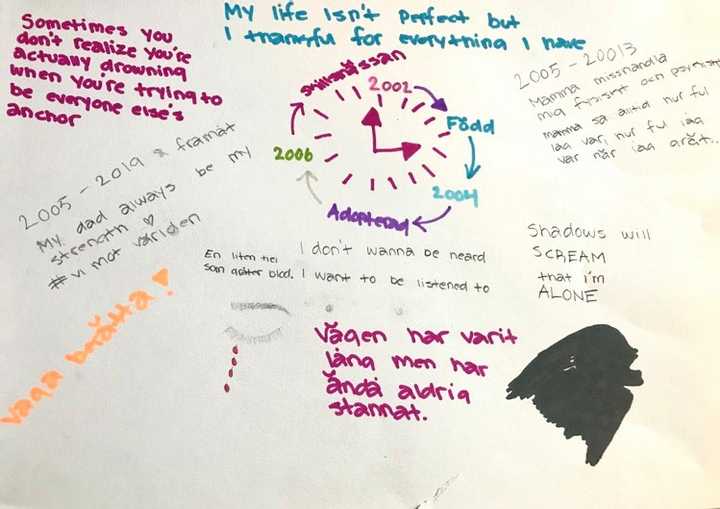 Sometimes you
don't realize you're
actually drowning
when you're trying to
be everyone else's
anchor
My life Isn't perfect but
I thankful for everything I have
2005 - 20013
Mamma misshandla
mig fysiskt och psykiskt
mamma sa alltid hur ful
jag var, hur ful jag
var när jag grät..
2002
Född
2004
Adopterad
2006
2005 - 2019 & framåt
My dad always be my
strength ♡
# vi mot världen
En liten tjej
som gråter blod.
I don't wanna be heard
I want to be listened to
Shadows will
SCREAM
that i'm
ALONE
våga berätta!
Vägen har varit
lång men har
ändå aldrig
stannat.